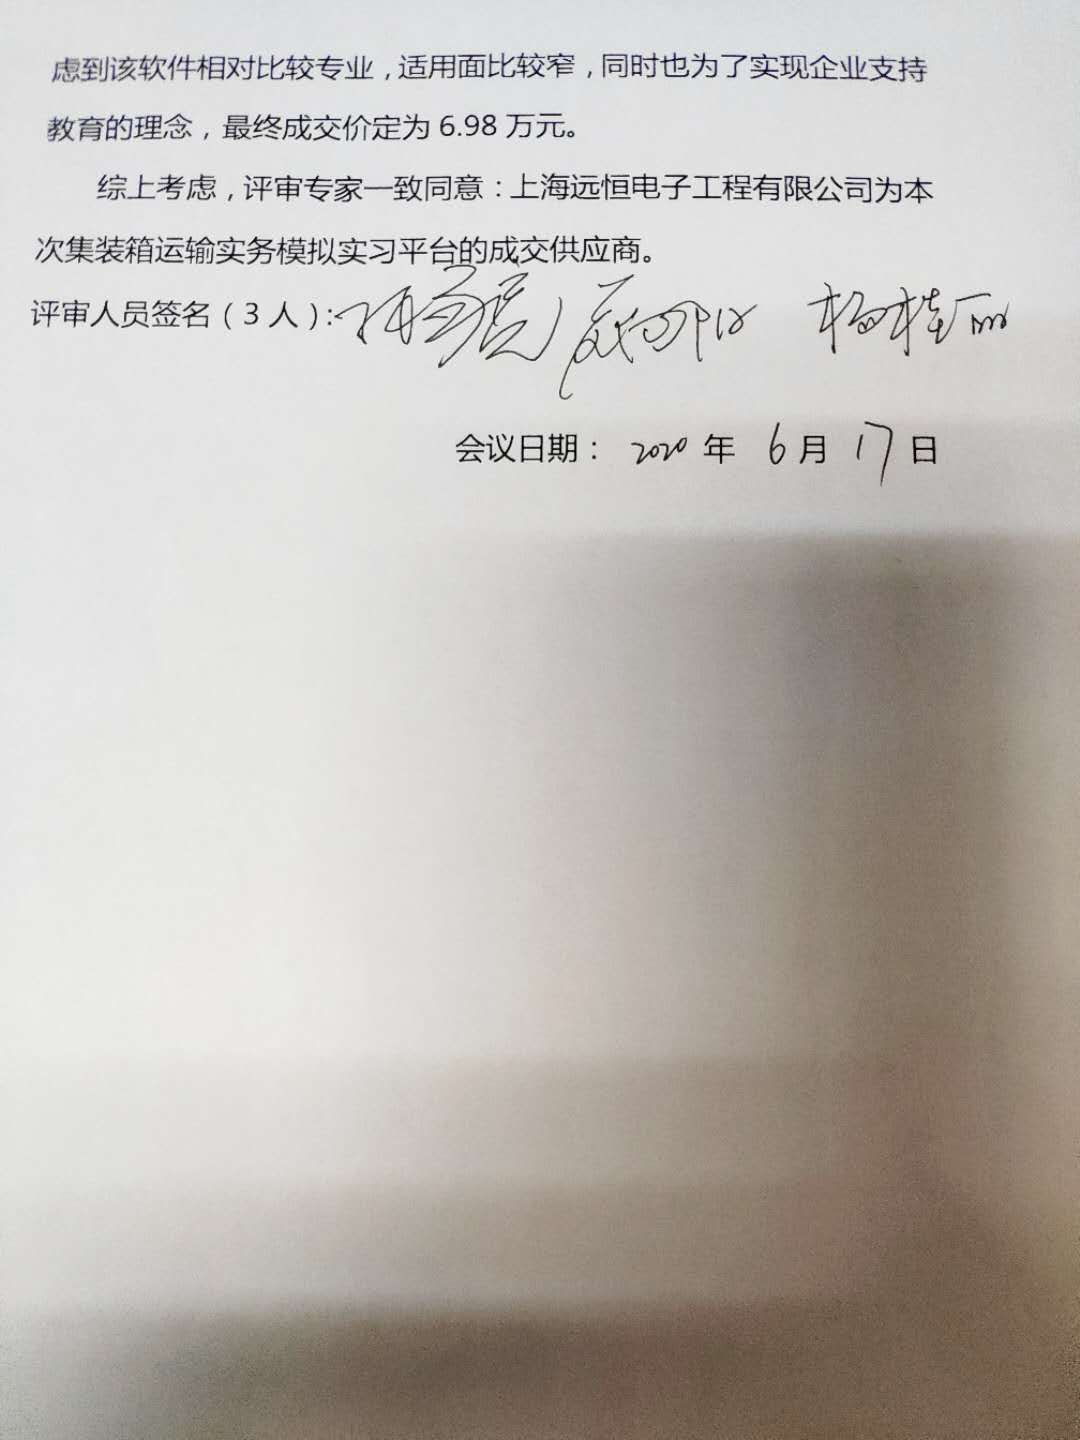 虑到该软件相对比较专业，适用面比较窄，同时也为了实现企业支持
教育的理念，最终成交价定为 6.98 万元。
综上考虑，评审专家一致同意：上海远恒电子工程有限公司为本
次集装箱运输实务模拟实习平台的成交供应商。
评审人员签名（3 人）： 杨桂丽
会议日期： 2020 年 6 月 17 日